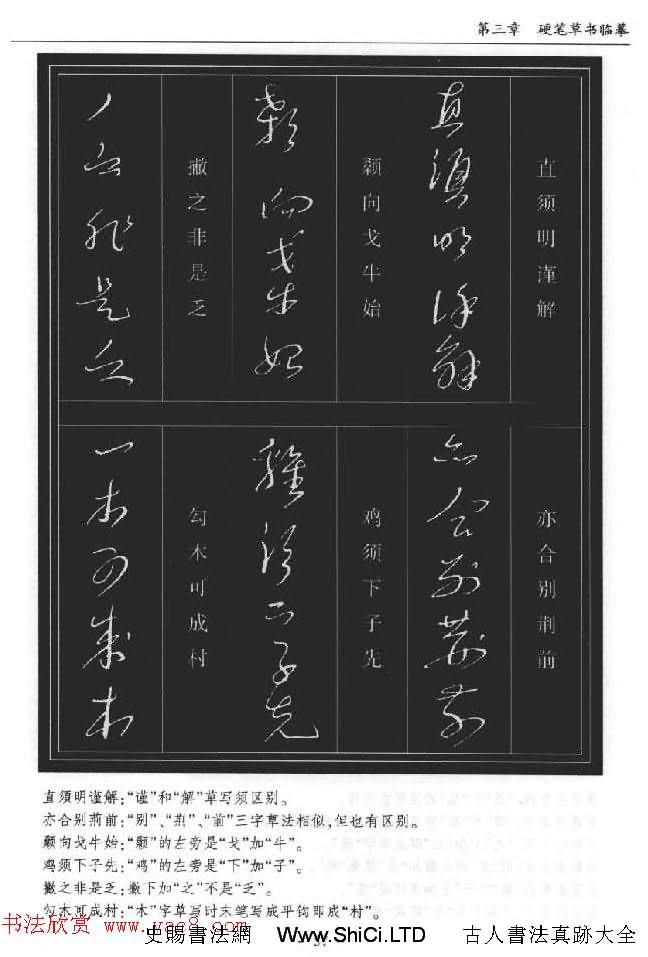 第三章 硬笔草书临摹
直须明谨解
颡向戈牛始
撇之非是乏
亦合别荆前
鸡须下子先
勾木可成村
直須明谨解:“谨”和“解”草写须区别。
亦合别荊前:“别”、“荆”、“前”三字草法相似,但也有区别。
颡向戈牛始:“颡”的左旁是“戈”加“牛”。
鸡须下子先:“鸡”的左旁是“下”加“子”。
撇之非是乏:撇下加“之”不是“乏”。
勾木可成村:“木”字草写时末笔写成平钩即成“村”。
书法欣赏 www.yac8.com
史賜書法網 Www.ShiCi.LTD 古人書法真跡大全